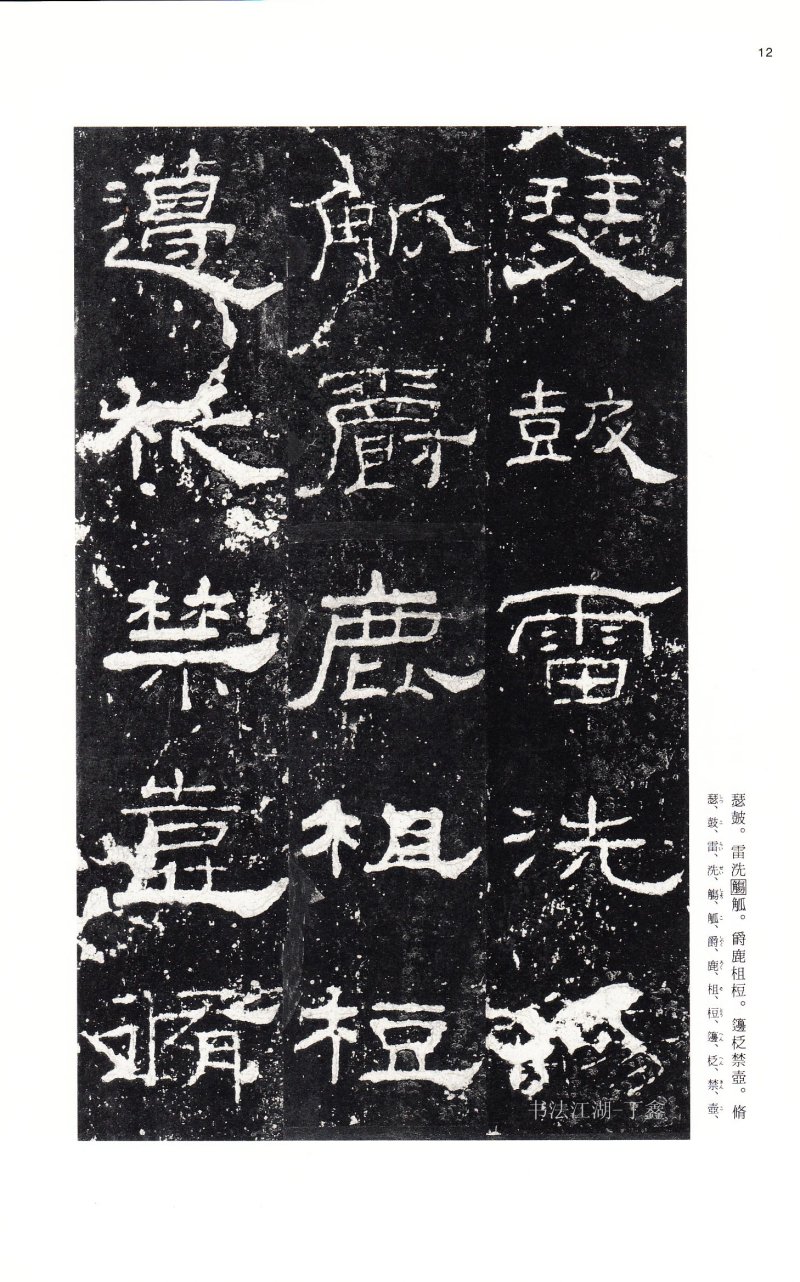 12
瑟鼓雷洗觴
觚爵鹿柤梪
籩柉禁壺脩
瑟鼓。雷洗觴觚。爵鹿柤梪。籩柉禁壺。脩
瑟、鼓、雷、洗、觴、觚、爵、鹿、柤、梪、籩、柉、禁、壺、
书法江湖-丁鑫